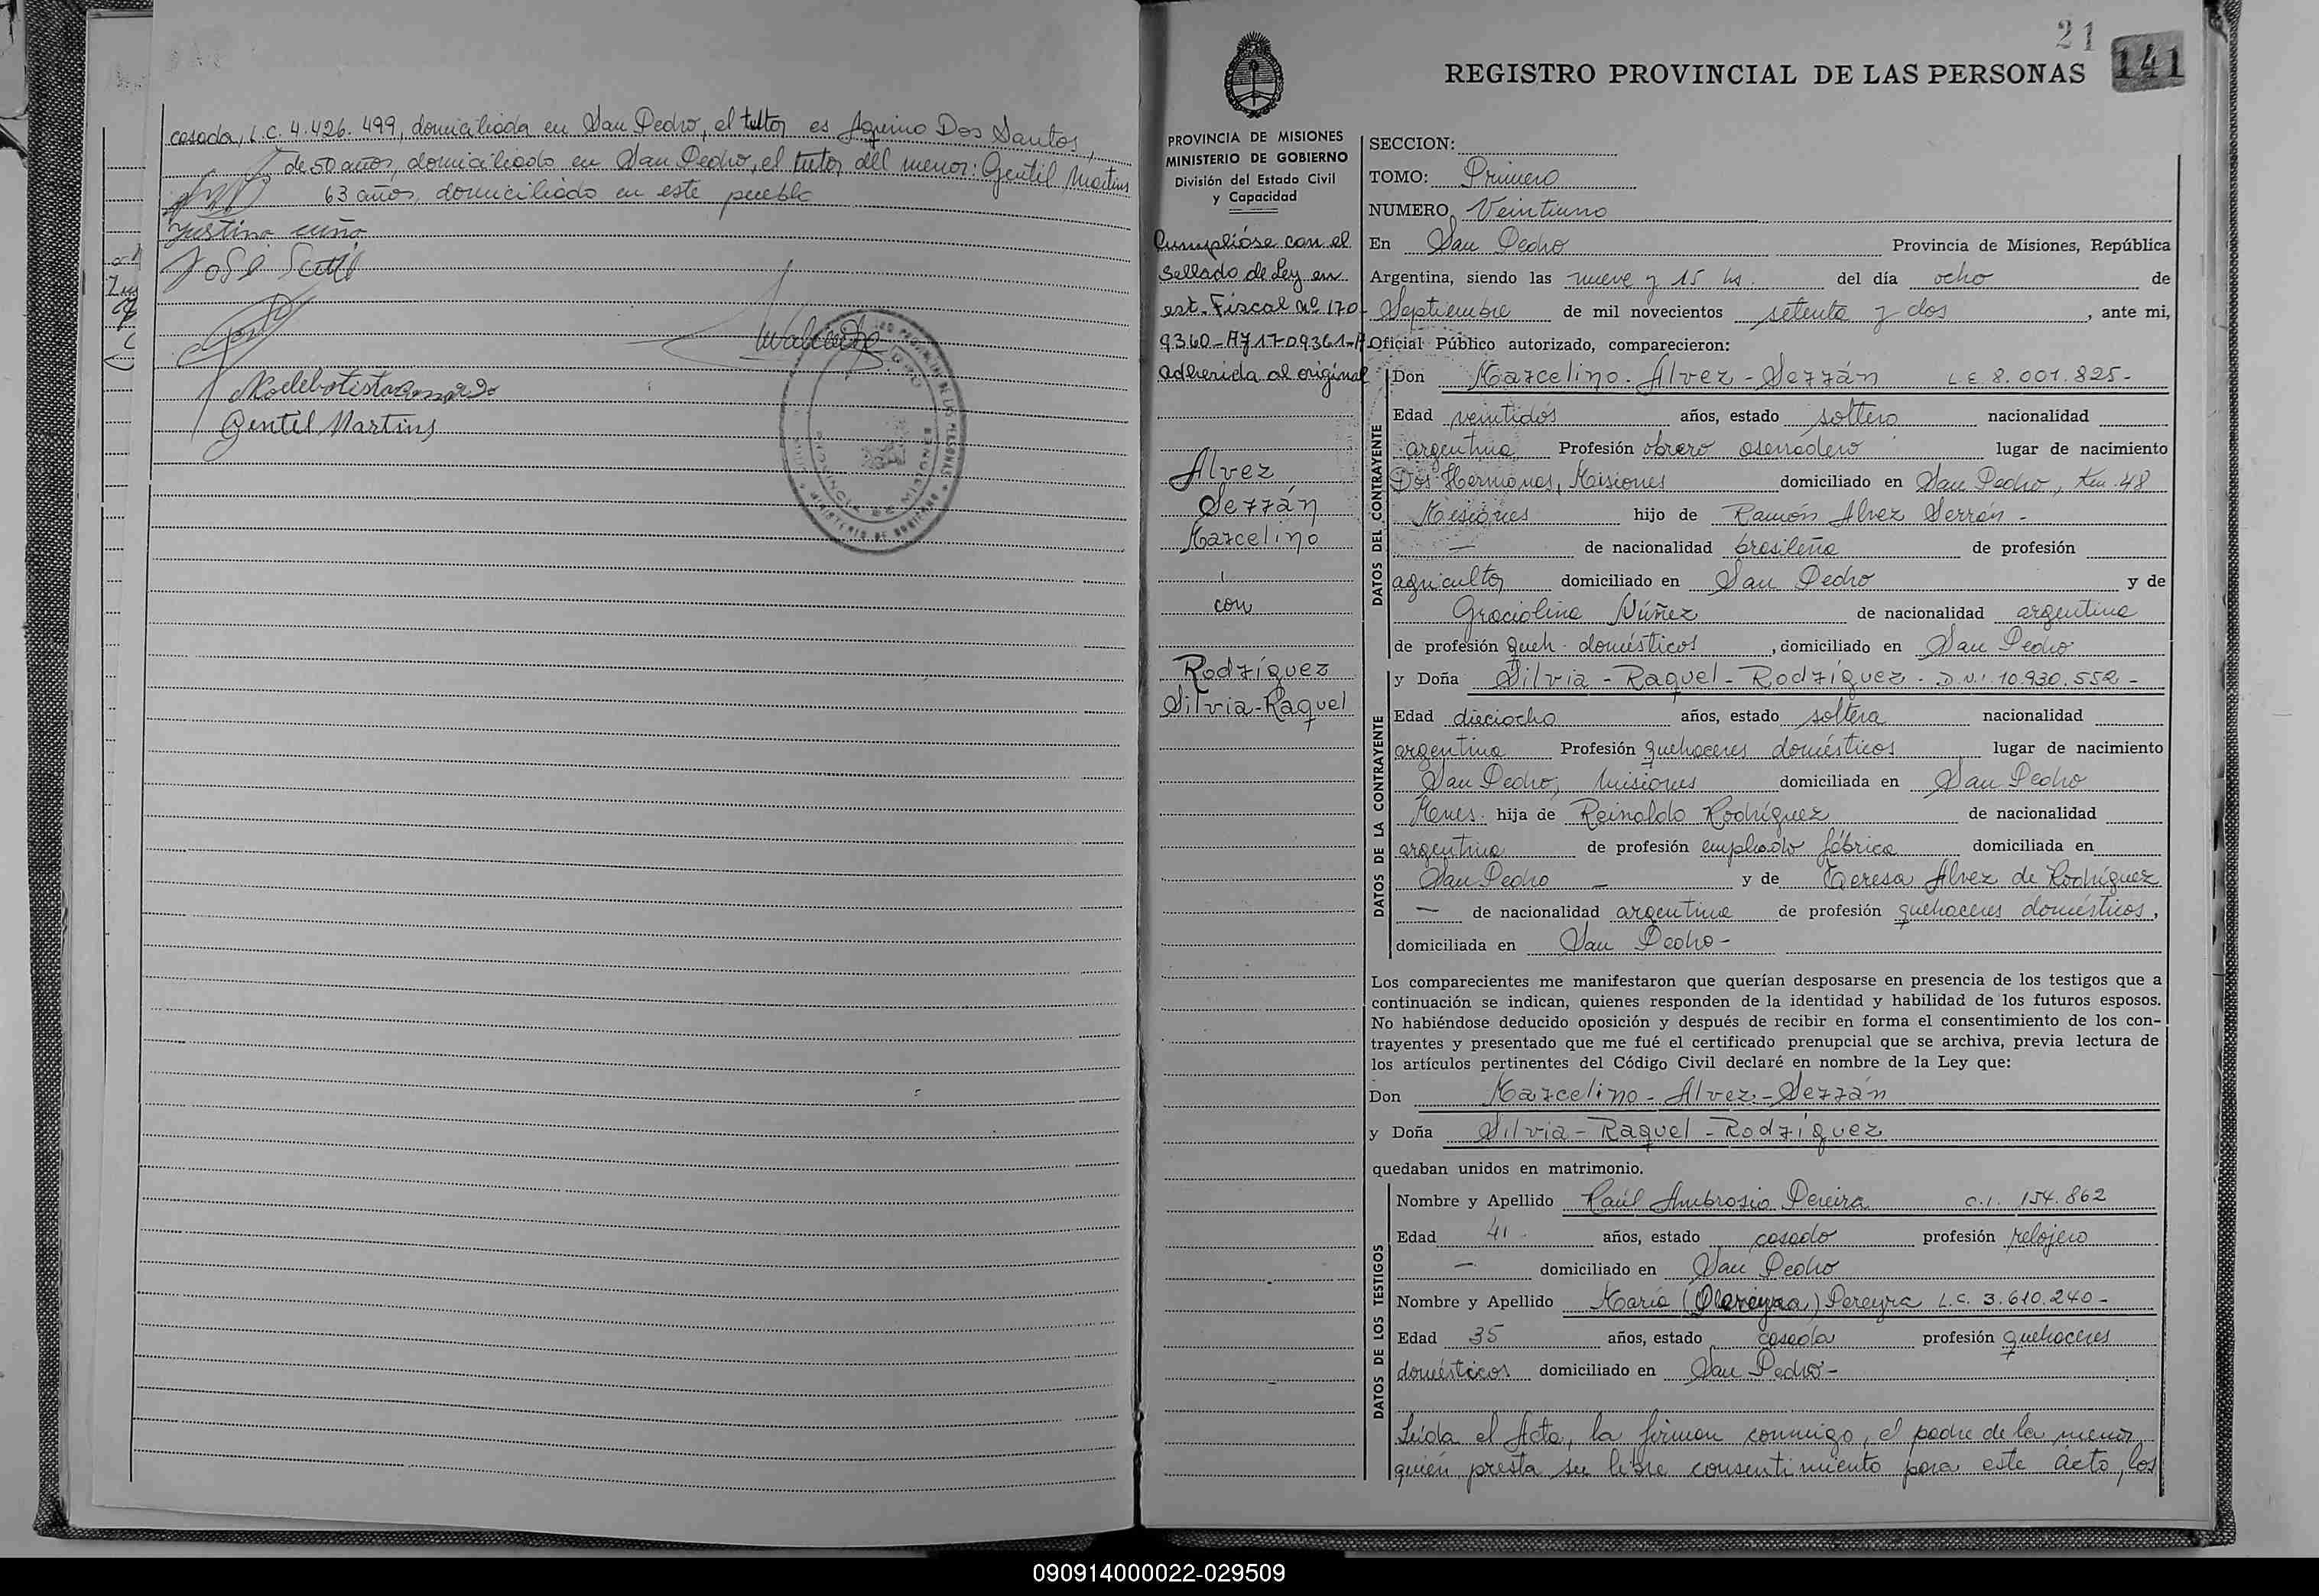 casada, L.C. 4.426.499, domiciliada en San Pedro, el tutor es Aquino Dos Santos,
de 50 años, domiciliado en San Pedro, el tutor del menor: Gentil Martins
63 años, domiciliado en este pueblo
Gentil Martins
21
141
REGISTRO PROVINCIAL DE LAS PERSONAS
PROVINCIA DE MISIONES
MINISTERIO DE GOBIERNO
División del Estado Civil
y Capacidad
Cumplióse con el
sellado de Ley en
est. Fiscal Nº 170
9360-A y 1709361-A
adherida al original
Alvez
Serrán
Marcelino
con
Rodríguez
Silvia-Raquel
SECCION:
TOMO: Primero
NUMERO Veintiuno
En San Pedro Provincia de Misiones, República
Argentina, siendo las nueve y 15 hs. del día ocho de
Septiembre de mil novecientos setenta y dos, ante mi,
Oficial Público autorizado, comparecieron:
DATOS DEL CONTRAYENTE
Don Marcelino-Alvez-Serrán L.E. 8.001.825-
Edad veintidós años, estado soltero nacionalidad
argentina Profesión obrero aserradero lugar de nacimiento
Dos Hermanas, Misiones domiciliado en San Pedro, Km. 48
Misiones hijo de Ramón Alvez Serrán-
— de nacionalidad brasileña de profesión
agricultor domiciliado en San Pedro y de
Graciolina Núñez de nacionalidad argentina
de profesión queh. domésticos, domiciliado en San Pedro
DATOS DE LA CONTRAYENTE
y Doña Silvia-Raquel-Rodríguez- D.N.I. 10.930.552-
Edad dieciocho años, estado soltera nacionalidad
argentina Profesión quehaceres domésticos lugar de nacimiento
San Pedro, Misiones domiciliada en San Pedro
Mnes. hija de Reinaldo Rodríguez de nacionalidad
argentina de profesión empleado fábrica domiciliada en
San Pedro — y de Teresa Alvez de Rodríguez
— de nacionalidad argentina de profesión quehaceres domésticos,
domiciliada en San Pedro-
Los comparecientes me manifestaron que querían desposarse en presencia de los testigos que a
continuación se indican, quienes responden de la identidad y habilidad de los futuros esposos.
No habiéndose deducido oposición y después de recibir en forma el consentimiento de los con-
trayentes y presentado que me fué el certificado prenupcial que se archiva, previa lectura de
los artículos pertinentes del Código Civil declaré en nombre de la Ley que:
Don Marcelino-Alvez-Serrán
y Doña Silvia-Raquel-Rodríguez
quedaban unidos en matrimonio.
DATOS DE LOS TESTIGOS
Nombre y Apellido Raúl Ambrosio Pereira C.I. 154.862
Edad 41 años, estado casado profesión relojero
— domiciliado en San Pedro
Nombre y Apellido María Pereyra L.C. 3.610.240-
Edad 35 años, estado casada profesión quehaceres
domésticos domiciliado en San Pedro-
Leída el Acta, la firman conmigo, el padre de la menor
quien presta su libre consentimiento para este acto, los
090914000022-029509